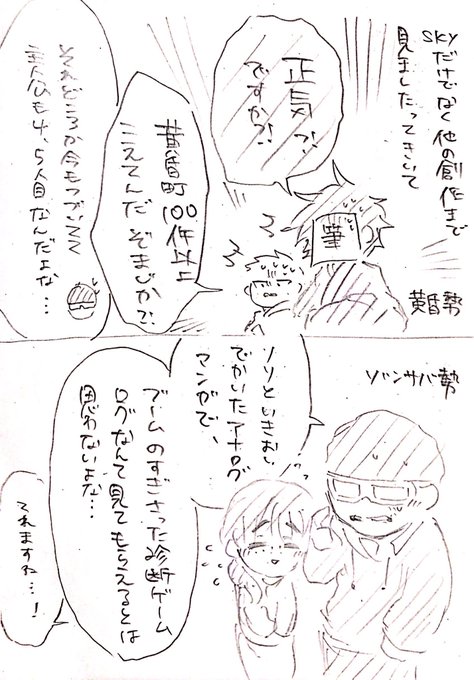 skyだけでなく他の創作まで
見ましたってきいて
正気!?
ですか?!
筆
黄昏勢
黄昏町100件以上
こえてんだ
ぞまじか?!
それどころか今もつづいてて
主人公も4、5人目なんだよな…
ゾンサバ勢
ノリといきおい
でかいたアナログ
マンガで、
ブームのすぎさった診断ゲーム
ログなんて見てもらえるとは
思わないよな…
てれますね…!